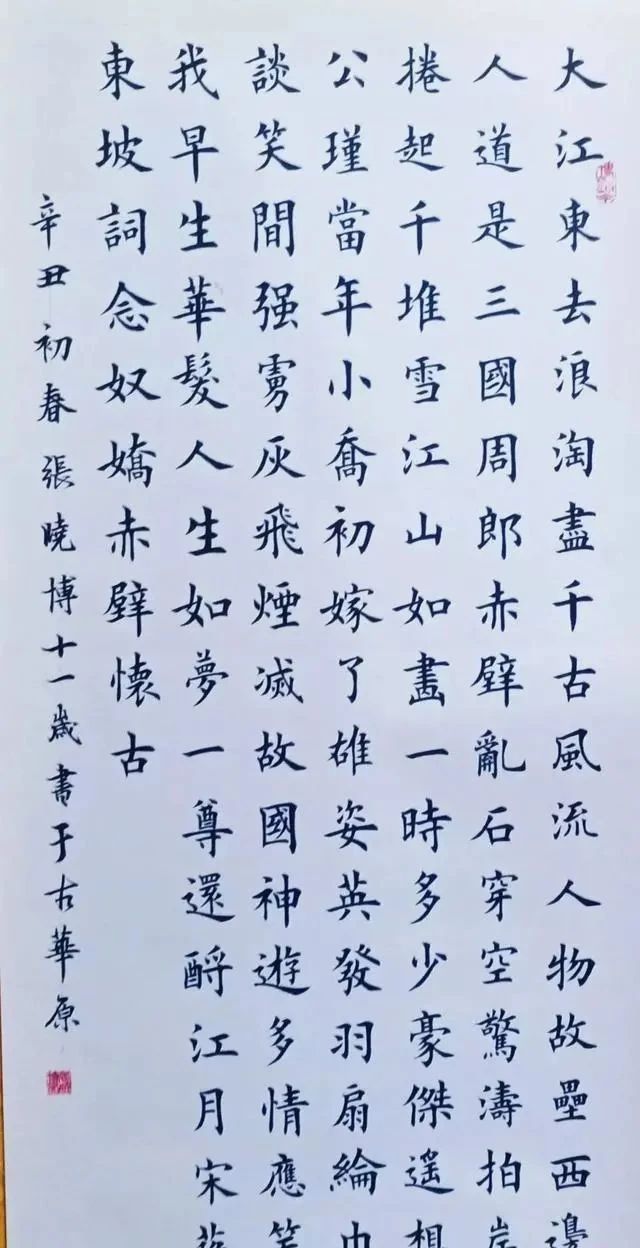 大江東去浪淘盡千古風流人物故壘西邊
人道是三國周郎赤壁亂石穿空驚濤拍岸
捲起千堆雪江山如畫一時多少豪傑遥想
公瑾當年小喬初嫁了雄姿英發羽扇綸巾
談笑間强虜灰飛煙滅故國神遊多情應笑
我早生華髮人生如夢一尊還酹江月宋蘇
東坡詞念奴嬌赤壁懷古
辛丑初春張曉博十一歲書于古華原